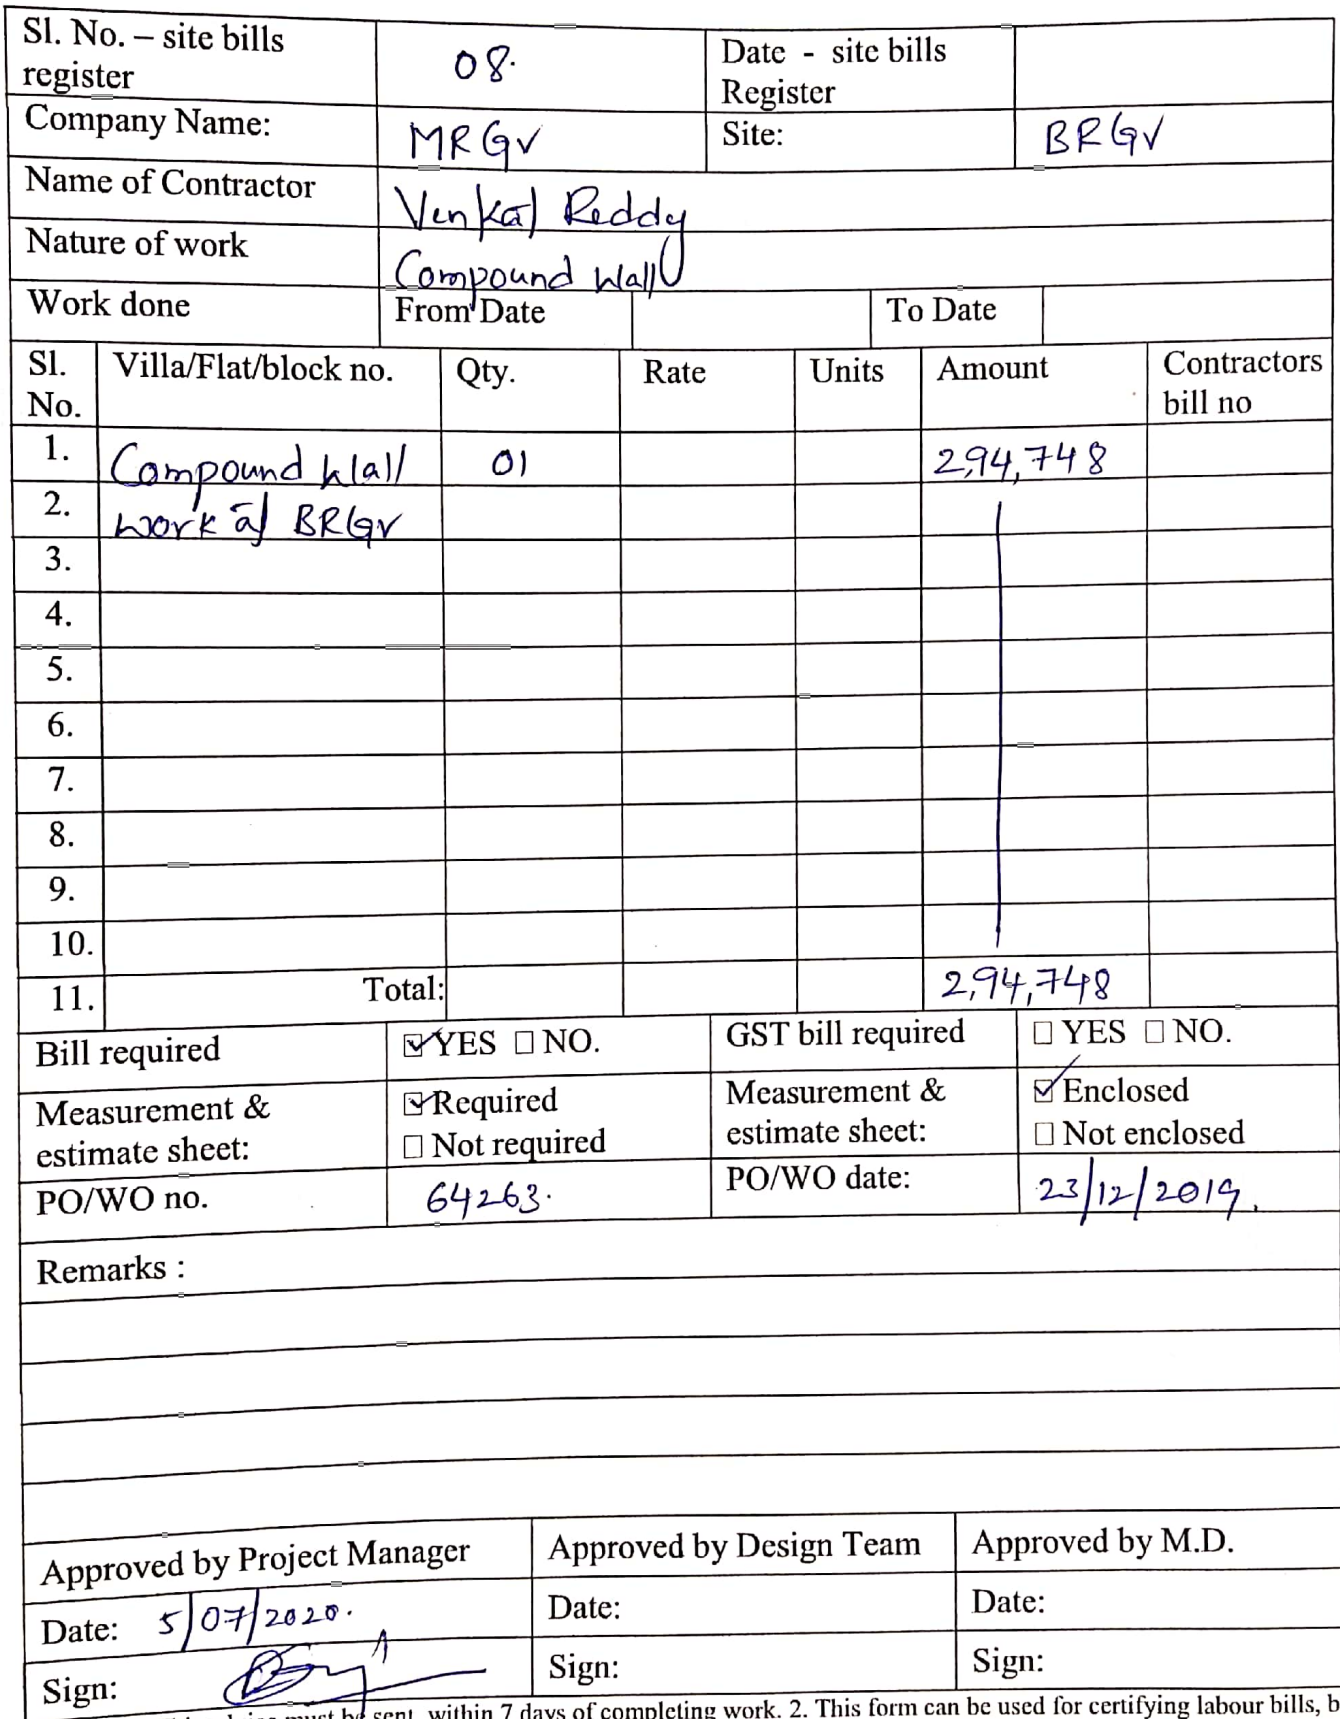 Sl. No. – site bills register 08. Date - site bills Register
Company Name: MRGV Site: BRGV
Name of Contractor Venkat Reddy
Nature of work Compound Wall
Work done From Date To Date
Sl. No. Villa/Flat/block no. Qty. Rate Units Amount Contractors bill no
1. Compound Wall 01 2,94,748
2. work at BRGV
3.
4.
5.
6.
7.
8.
9.
10.
11. Total: 2,94,748
Bill required ☑YES ☐NO. GST bill required ☐ YES ☐ NO.
Measurement & estimate sheet: ☑Required ☐ Not required Measurement & estimate sheet: ☑Enclosed ☐ Not enclosed
PO/WO no. 64263. PO/WO date: 23/12/2019.
Remarks :
Approved by Project Manager Approved by Design Team Approved by M.D.
Date: 5/07/2020. Date: Date:
Sign: Sign: Sign:
must be sent within 7 days of completing work. 2. This form can be used for certifying labour bills, b